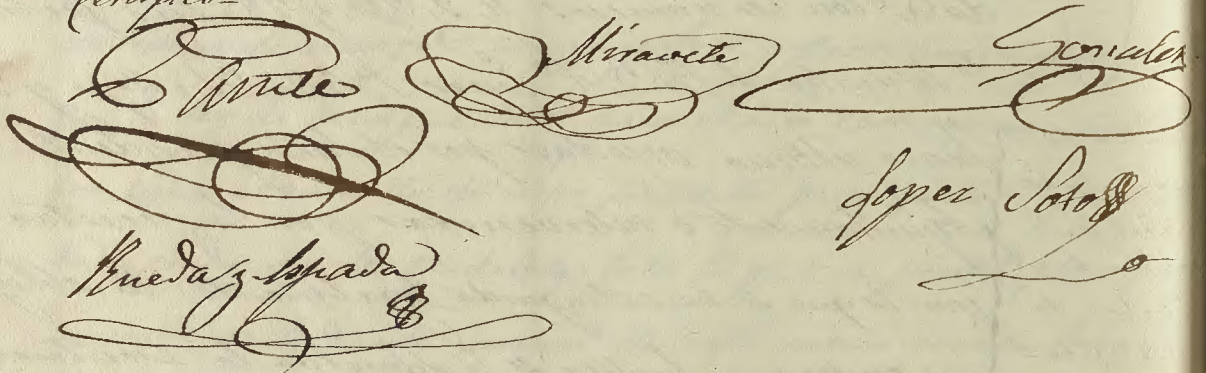 Miravete
Gonzalez
Lopez Soto
Rueda y Espada